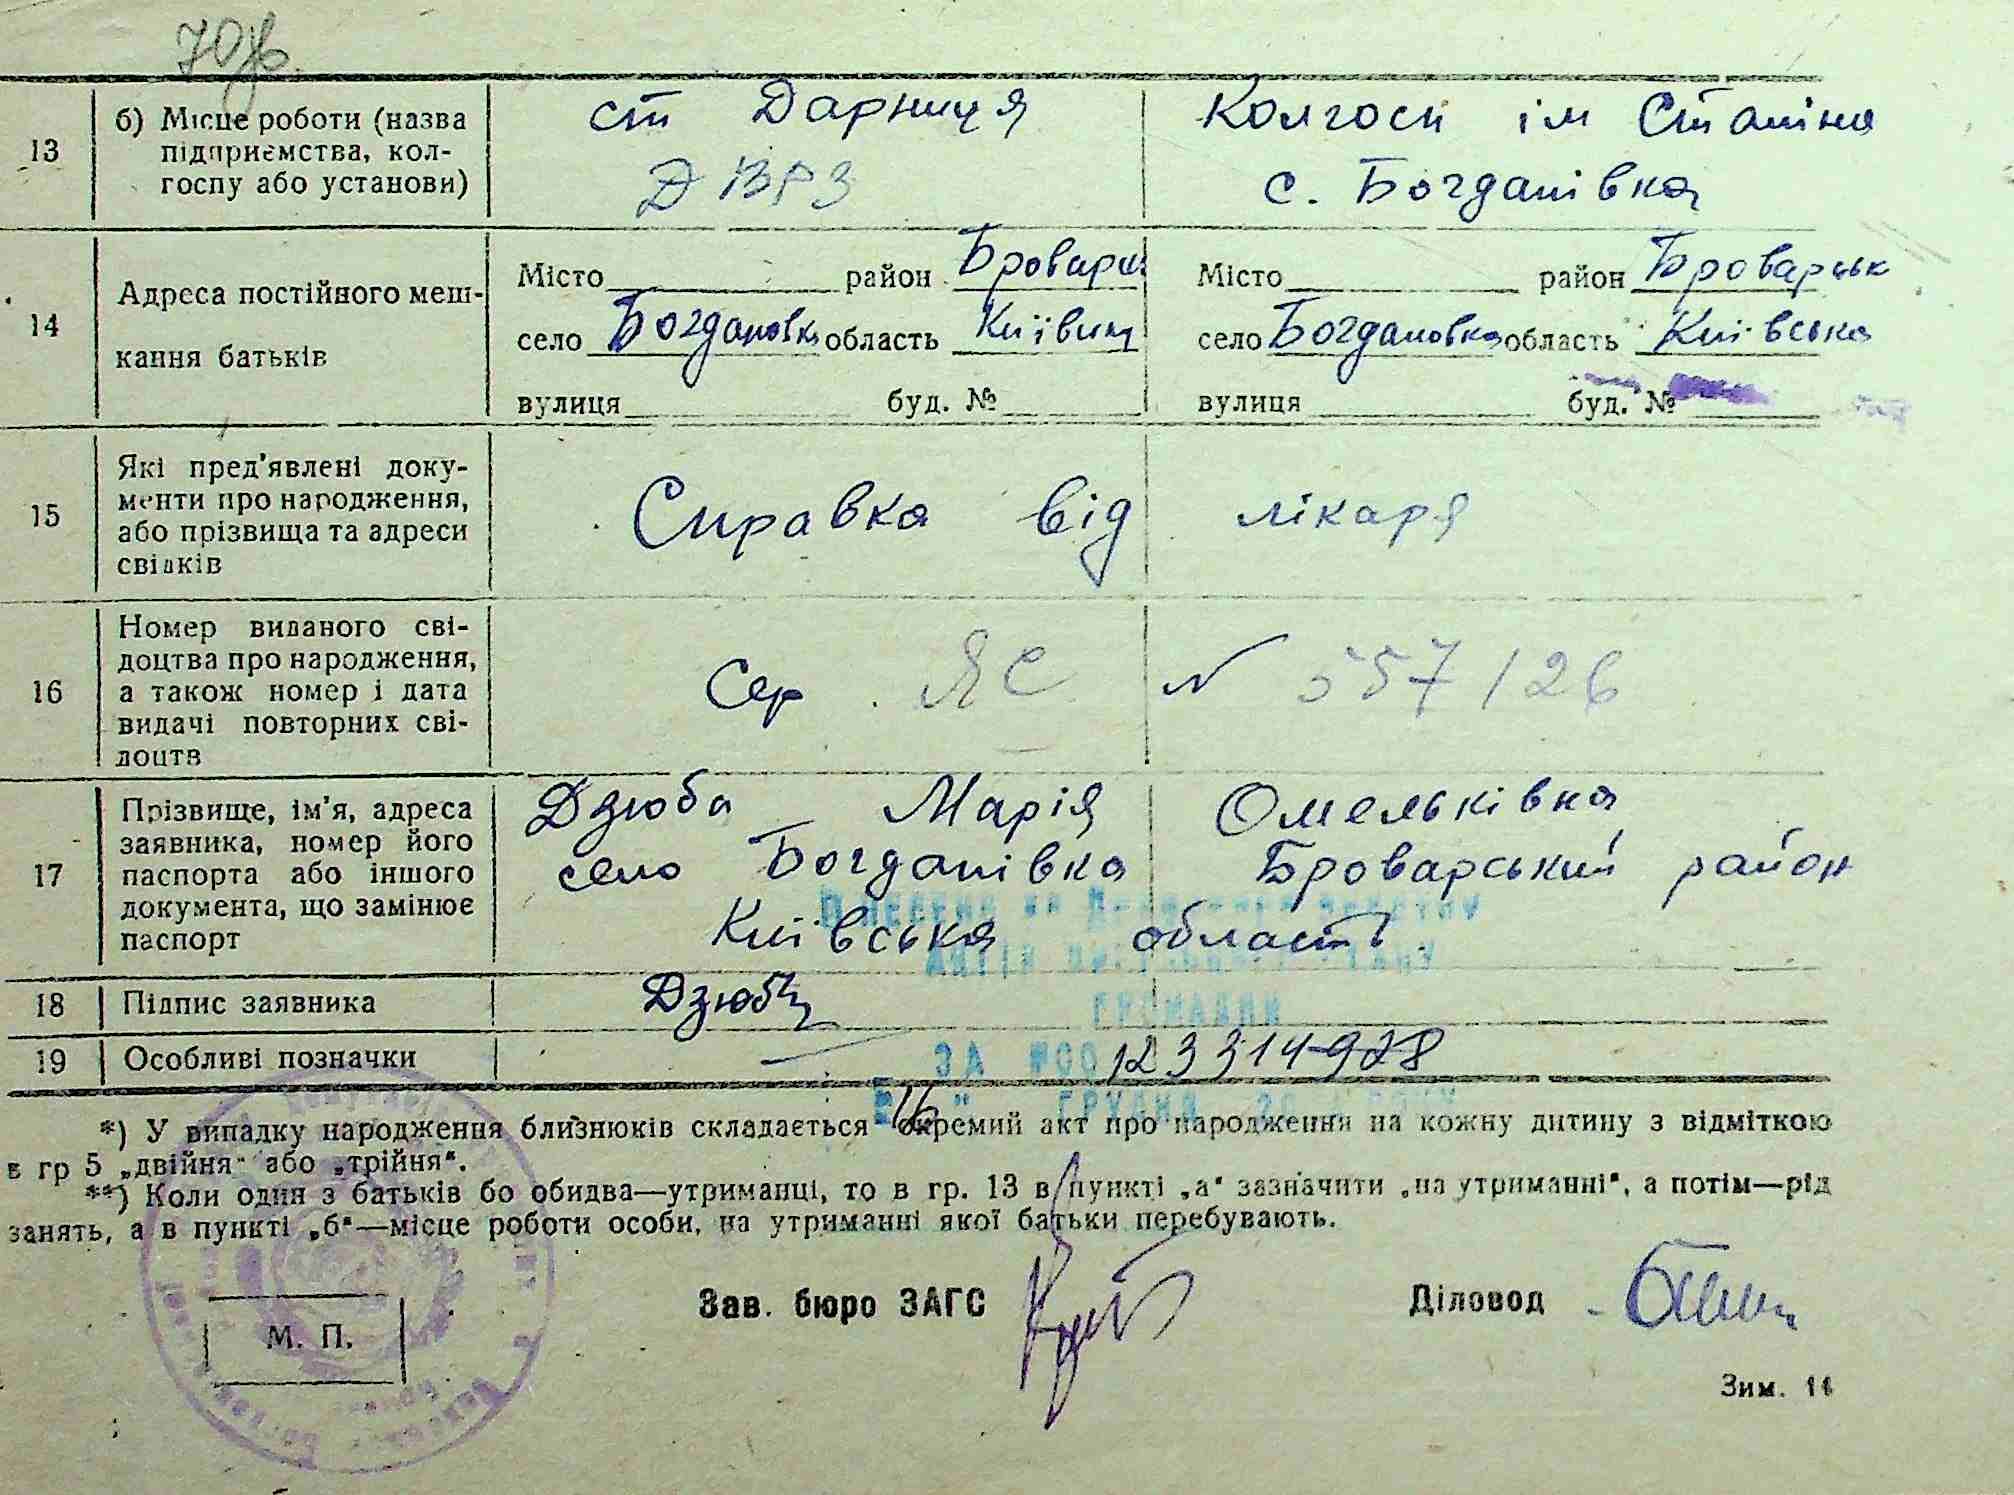 70
13 б) Місце роботи (назва підприємства, колгоспу або установи) ст Дарниця ДВРЗ Колгосп ім Сталіна с. Богданівка
14 Адреса постійного мешкання батьків
Місто район Бровари Місто район Броварськ
село Богдановка область Київщ село Богдановка область Київська
вулиця буд. № вулиця буд. №
15 Які пред'явлені документи про народження, або прізвища та адреси свідків Справка від лікаря
16 Номер виданого свідоцтва про народження, а також номер і дата видачі повторних свідоцтв Сер ЯС № 557126
17 Прізвище, ім'я, адреса заявника, номер його паспорта або іншого документа, що замінює паспорт
Дзюба Марія Омельківна
село Богданівка Броварський район
Київська область
18 Підпис заявника Дзюба
19 Особливі позначки —
актів
громадян
ЗА №00 123314928
16 грудня
*) У випадку народження близнюків складається окремий акт про народження на кожну дитину з відміткою
в гр 5 „двійня“ або „трійня“.
**) Коли один з батьків бо обидва—утриманці, то в гр. 13 в пункті „а“ зазначити „на утриманні“, а потім—рід
занять, а в пункті „б“—місце роботи особи, на утриманні якої батьки перебувають.
Зав. бюро ЗАГС Діловод
М. П.
Зим. 14